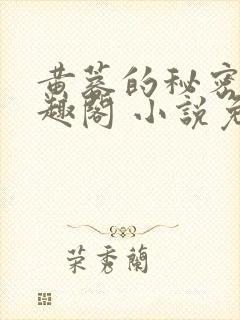 黄蓉的秘密
趣阁 小說免
荣秀蘭